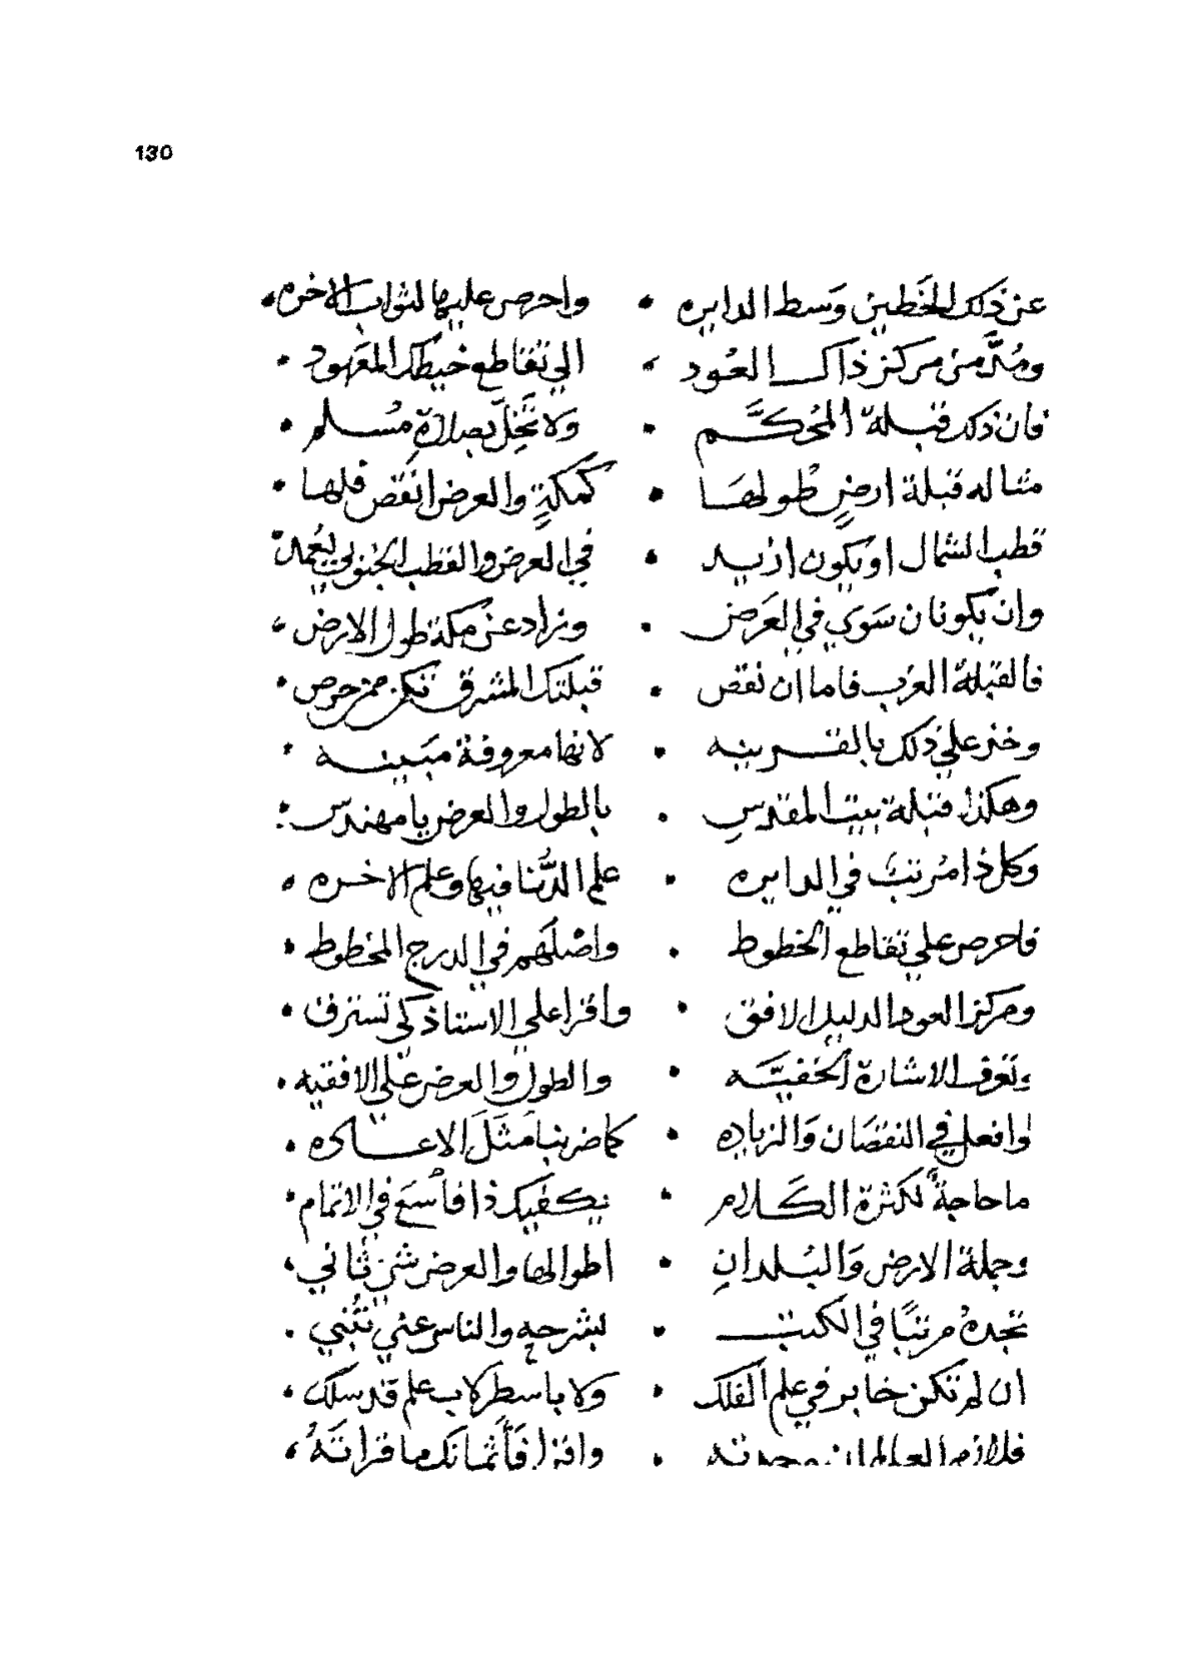 130
عن ذلك الخطين وَسط الدايره • واحرص عليها لثواب الاخره
ومُدَّ من مركز ذاك العُود • الي تقاطع خيطك المعَهود
فان ذلك قبلة المُحكَّم • ولا تَخِلّ بصلاةِ مُسلم
مثاله قبلة ارضٍ طُولهَا • كمكةٍ والعرض انقص فلها
قطب الشمال او يكون ازيد • في العرض والقطب الجنوبي ليُعمد
وان يكونان سَوَي في العَرض • وزاد عن مكة طول الارض
فالقبلة الغرب فاما ان نقص • قبلتك المشرق تكن ممن حرص
وخذ علي ذلك بالقرينه • لانها معروفة مبَينه
وهكذا قبلة بيت المقدسِ • بالطول والعرض يا مهندس
وكل ذا مُرتبٌ في الدايره • علم الدُّنا فيها وعلم الاخره
فاحرص علي تقاطع الخطوط • واصْلَهم في الدرج المخطوط
ومركز العود الدليل الافق • واقرا علي الاستاذ كي تسترق
وتعرف الاشارة الخفيَّه • والطول والعرض علي الافقيه
وافعل في النقصَان وَالزياده • كما ضربنا مَثَلَ الاعاده
ما حاجةً لكثرة الكَلام • يكفيك ذا فاسْعَ في الاتمام
وجملة الارض وَالبُلدانِ • اطوالها والعرض شي ثاني
تجدهُ مرتبًا في الكتب • بشرحهِ والناس عني تُنبي
ان لم تكن خابر في علم الفلك • ولا باسطرلاب علم قد سلك
فلازم العالم ان وجدته • واقرا فَأثمانك ما قراتَهُ